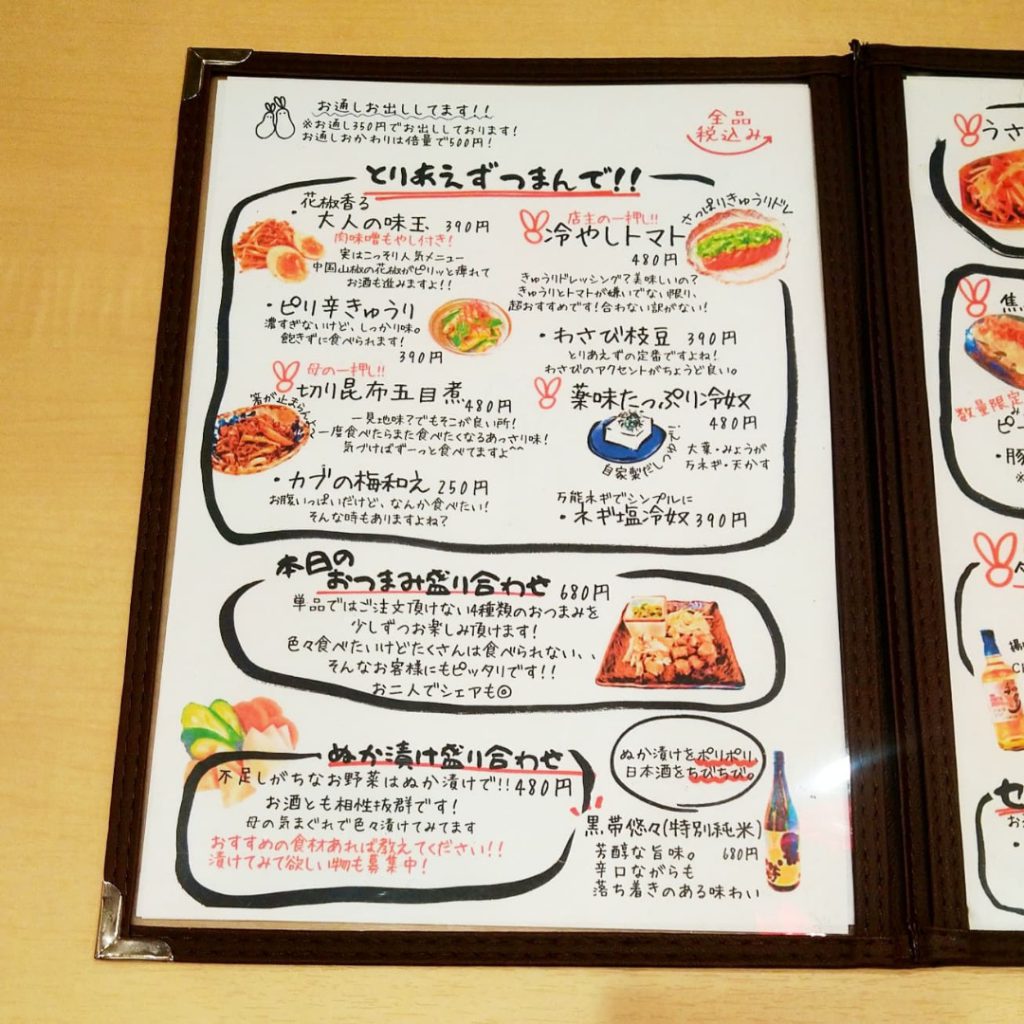 お通しお出ししてます!!
※お通し350円でお出ししております!
お通しおかわりは倍量で500円!
全品
税込み
とりあえずつまんで!!
・花椒香る
大人の味玉、390円
肉味噌もやし付き!
実はこっそり人気メニュー
中国山椒の花椒がピリッと痺れて
お酒も進みますよ!!
・ピリ辛きゅうり
濃すぎないけど、しっかり味。
飽きずに食べられます!
390円
母の一押し!!
切り昆布五目煮 480円
箸が止まらん
一見地味?でもそこが良い所!
一度食べたらまた食べたくなるあっさり味!
気づけばずーっと食べてますよ^^
・カブの梅和え 250円
お腹いっぱいだけど、なんか食べたい!
そんな時もありますよね?
店主の一押し!!
冷やしトマト
480円
さっぱりきゅうりドレ
きゅうりドレッシング?美味しいの?
きゅうりとトマトが嫌いでない限り、
超おすすめです!合わない訳がない!
・わさび枝豆 390円
とりあえずの定番ですよね!
わさびのアクセントがちょうど良い。
薬味たっぷり冷奴
480円
自家製だしつゆ
大葉・みょうが
万ネギ・天かす
万能ネギでシンプルに
・ネギ塩冷奴 390円
本日の
おつまみ盛り合わせ 680円
単品ではご注文頂けない4種類のおつまみを
少しずつお楽しみ頂けます!
色々食べたいけどたくさんは食べられない、、
そんなお客様にもピッタリです!!
お二人でシェアも◎
ぬか漬け盛り合わせ
不足しがちなお野菜はぬか漬けで!! 480円
お酒とも相性抜群です!
母の気まぐれで色々漬けてみてます
おすすめの食材あれば教えてください!!
漬けてみて欲しい物も募集中!
ぬか漬けをポリポリ
日本酒をちびちび。
黒帯悠々(特別純米)
芳醇な旨味。 680円
辛口ながらも
落ち着きのある味わい
うさ
焦
数量限定
ピー
・豚
※